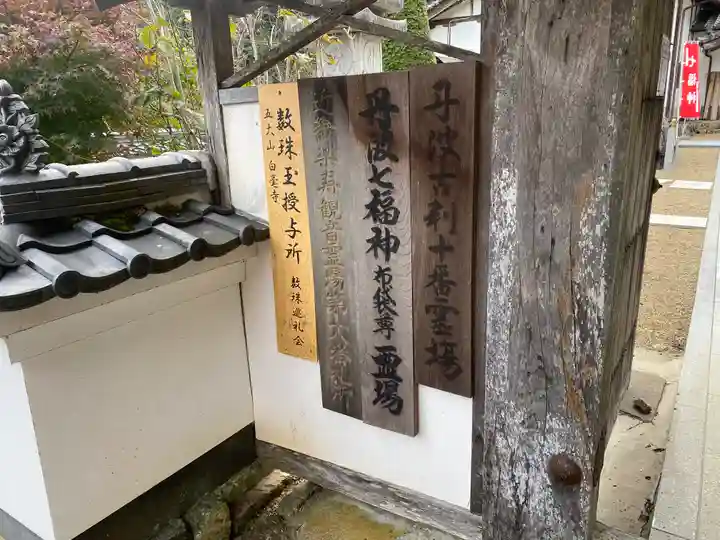 丹波古刹十番霊場
丹波七福神 布袋尊 霊場
観音霊場第
数珠玉授与所 数珠巡礼会
五大山 白毫寺